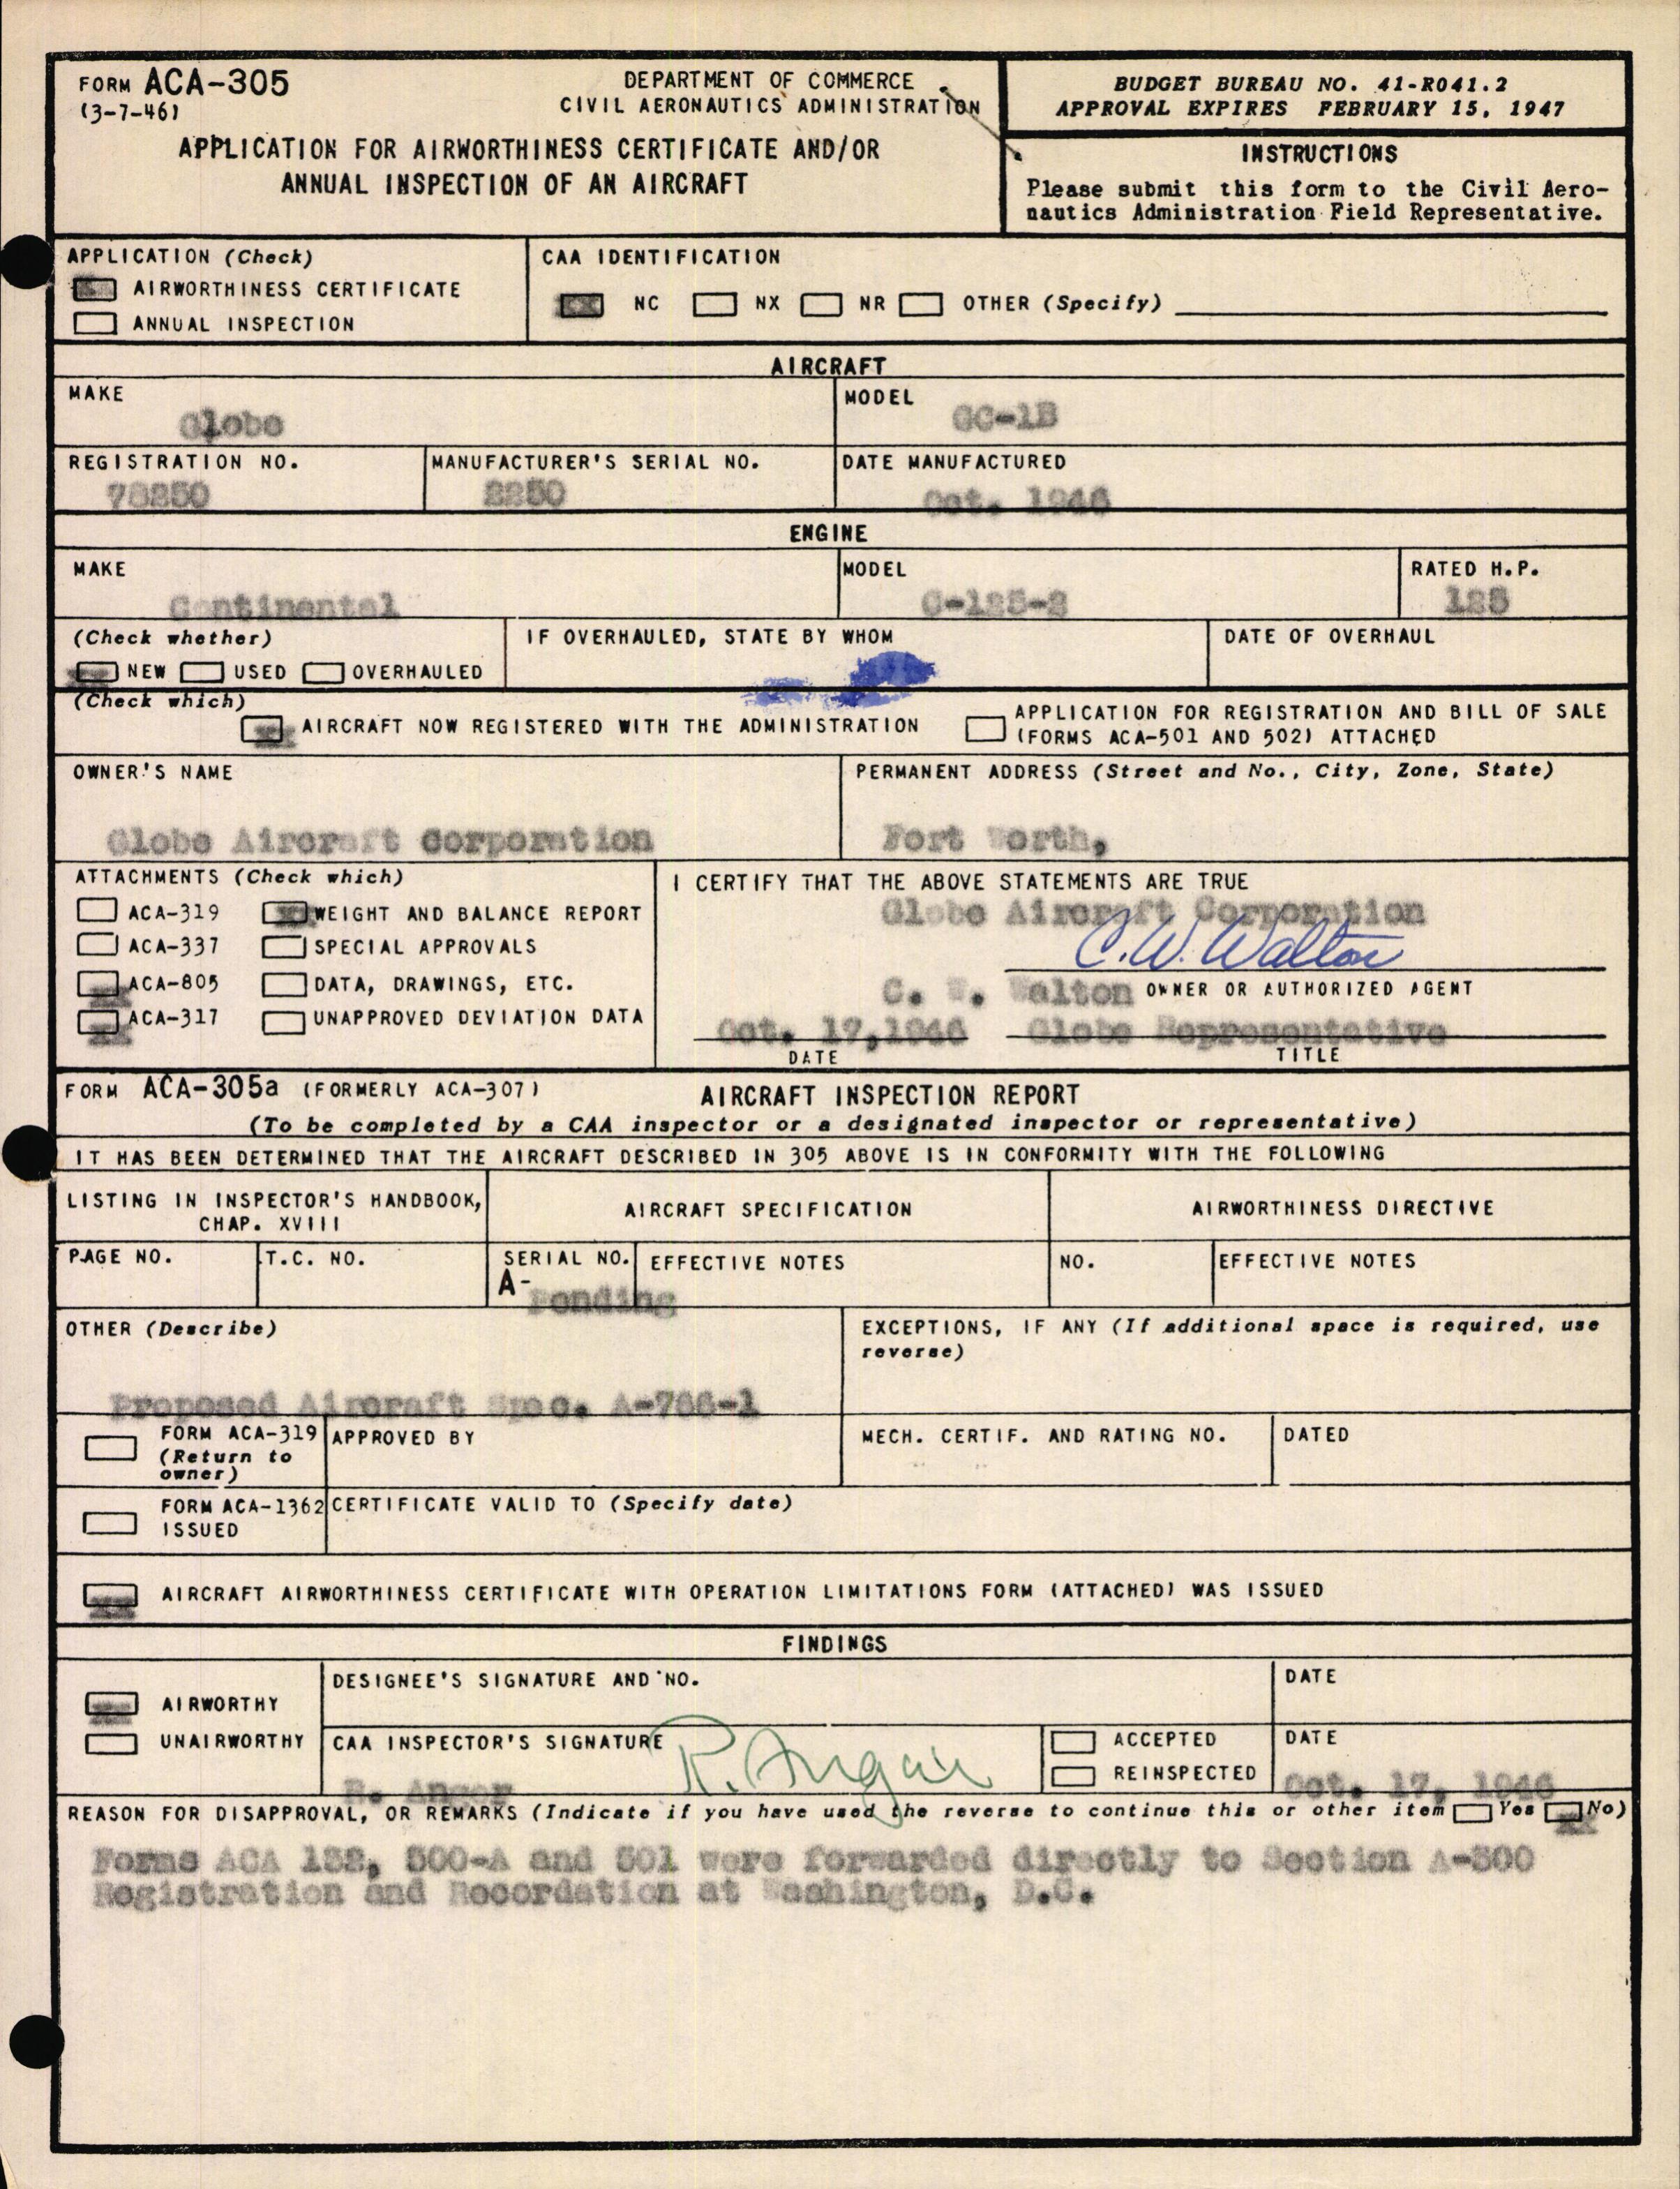 FORM ACA-305
(3-7-46)
DEPARTMENT OF COMMERCE
CIVIL AERONAUTICS ADMINISTRATION
APPLICATION FOR AIRWORTHINESS CERTIFICATE AND/OR
ANNUAL INSPECTION OF AN AIRCRAFT
BUDGET BUREAU NO. 41-R041.2
APPROVAL EXPIRES FEBRUARY 15, 1947
INSTRUCTIONS
Please submit this form to the Civil Aero-
nautics Administration Field Representative.
APPLICATION (Check)
AIRWORTHINESS CERTIFICATE
ANNUAL INSPECTION
CAA IDENTIFICATION
NC NX NR OTHER (Specify)
AIRCRAFT
MAKE
Globe
MODEL
GC-1B
REGISTRATION NO.
78250
MANUFACTURER'S SERIAL NO.
2250
DATE MANUFACTURED
Oct. 1946
ENGINE
MAKE
Continental
MODEL
C-125-2
RATED H.P.
125
(Check whether)
NEW USED OVERHAULED
IF OVERHAULED, STATE BY WHOM
DATE OF OVERHAUL
(Check which)
AIRCRAFT NOW REGISTERED WITH THE ADMINISTRATION
APPLICATION FOR REGISTRATION AND BILL OF SALE
(FORMS ACA-501 AND 502) ATTACHED
OWNER'S NAME
Globe Aircraft Corporation
PERMANENT ADDRESS (Street and No., City, Zone, State)
Fort Worth,
ATTACHMENTS (Check which)
ACA-319 WEIGHT AND BALANCE REPORT
ACA-337 SPECIAL APPROVALS
ACA-805 DATA, DRAWINGS, ETC.
ACA-317 UNAPPROVED DEVIATION DATA
I CERTIFY THAT THE ABOVE STATEMENTS ARE TRUE
Globe Aircraft Corporation
C.W. Walton
C. W. Walton OWNER OR AUTHORIZED AGENT
Oct. 17,1946 Globe Representative
DATE TITLE
FORM ACA-305a (FORMERLY ACA-307) AIRCRAFT INSPECTION REPORT
(To be completed by a CAA inspector or a designated inspector or representative)
IT HAS BEEN DETERMINED THAT THE AIRCRAFT DESCRIBED IN 305 ABOVE IS IN CONFORMITY WITH THE FOLLOWING
LISTING IN INSPECTOR'S HANDBOOK,
CHAP. XVIII
AIRCRAFT SPECIFICATION
AIRWORTHINESS DIRECTIVE
PAGE NO.
T.C. NO.
SERIAL NO.
A- Pending
EFFECTIVE NOTES
NO.
EFFECTIVE NOTES
OTHER (Describe)
Proposed Aircraft Spec. A-766-1
EXCEPTIONS, IF ANY (If additional space is required, use
reverse)
FORM ACA-319
(Return to
owner)
APPROVED BY
MECH. CERTIF. AND RATING NO.
DATED
FORM ACA-1362
ISSUED
CERTIFICATE VALID TO (Specify date)
AIRCRAFT AIRWORTHINESS CERTIFICATE WITH OPERATION LIMITATIONS FORM (ATTACHED) WAS ISSUED
FINDINGS
AIRWORTHY
UNAIRWORTHY
DESIGNEE'S SIGNATURE AND NO.
DATE
CAA INSPECTOR'S SIGNATURE
R. Anger
R. Anger
ACCEPTED
REINSPECTED
DATE
Oct. 17, 1946
REASON FOR DISAPPROVAL, OR REMARKS (Indicate if you have used the reverse to continue this or other item Yes No)
Forms ACA 132, 500-A and 501 were forwarded directly to Section A-500
Registration and Recordation at Washington, D.C.